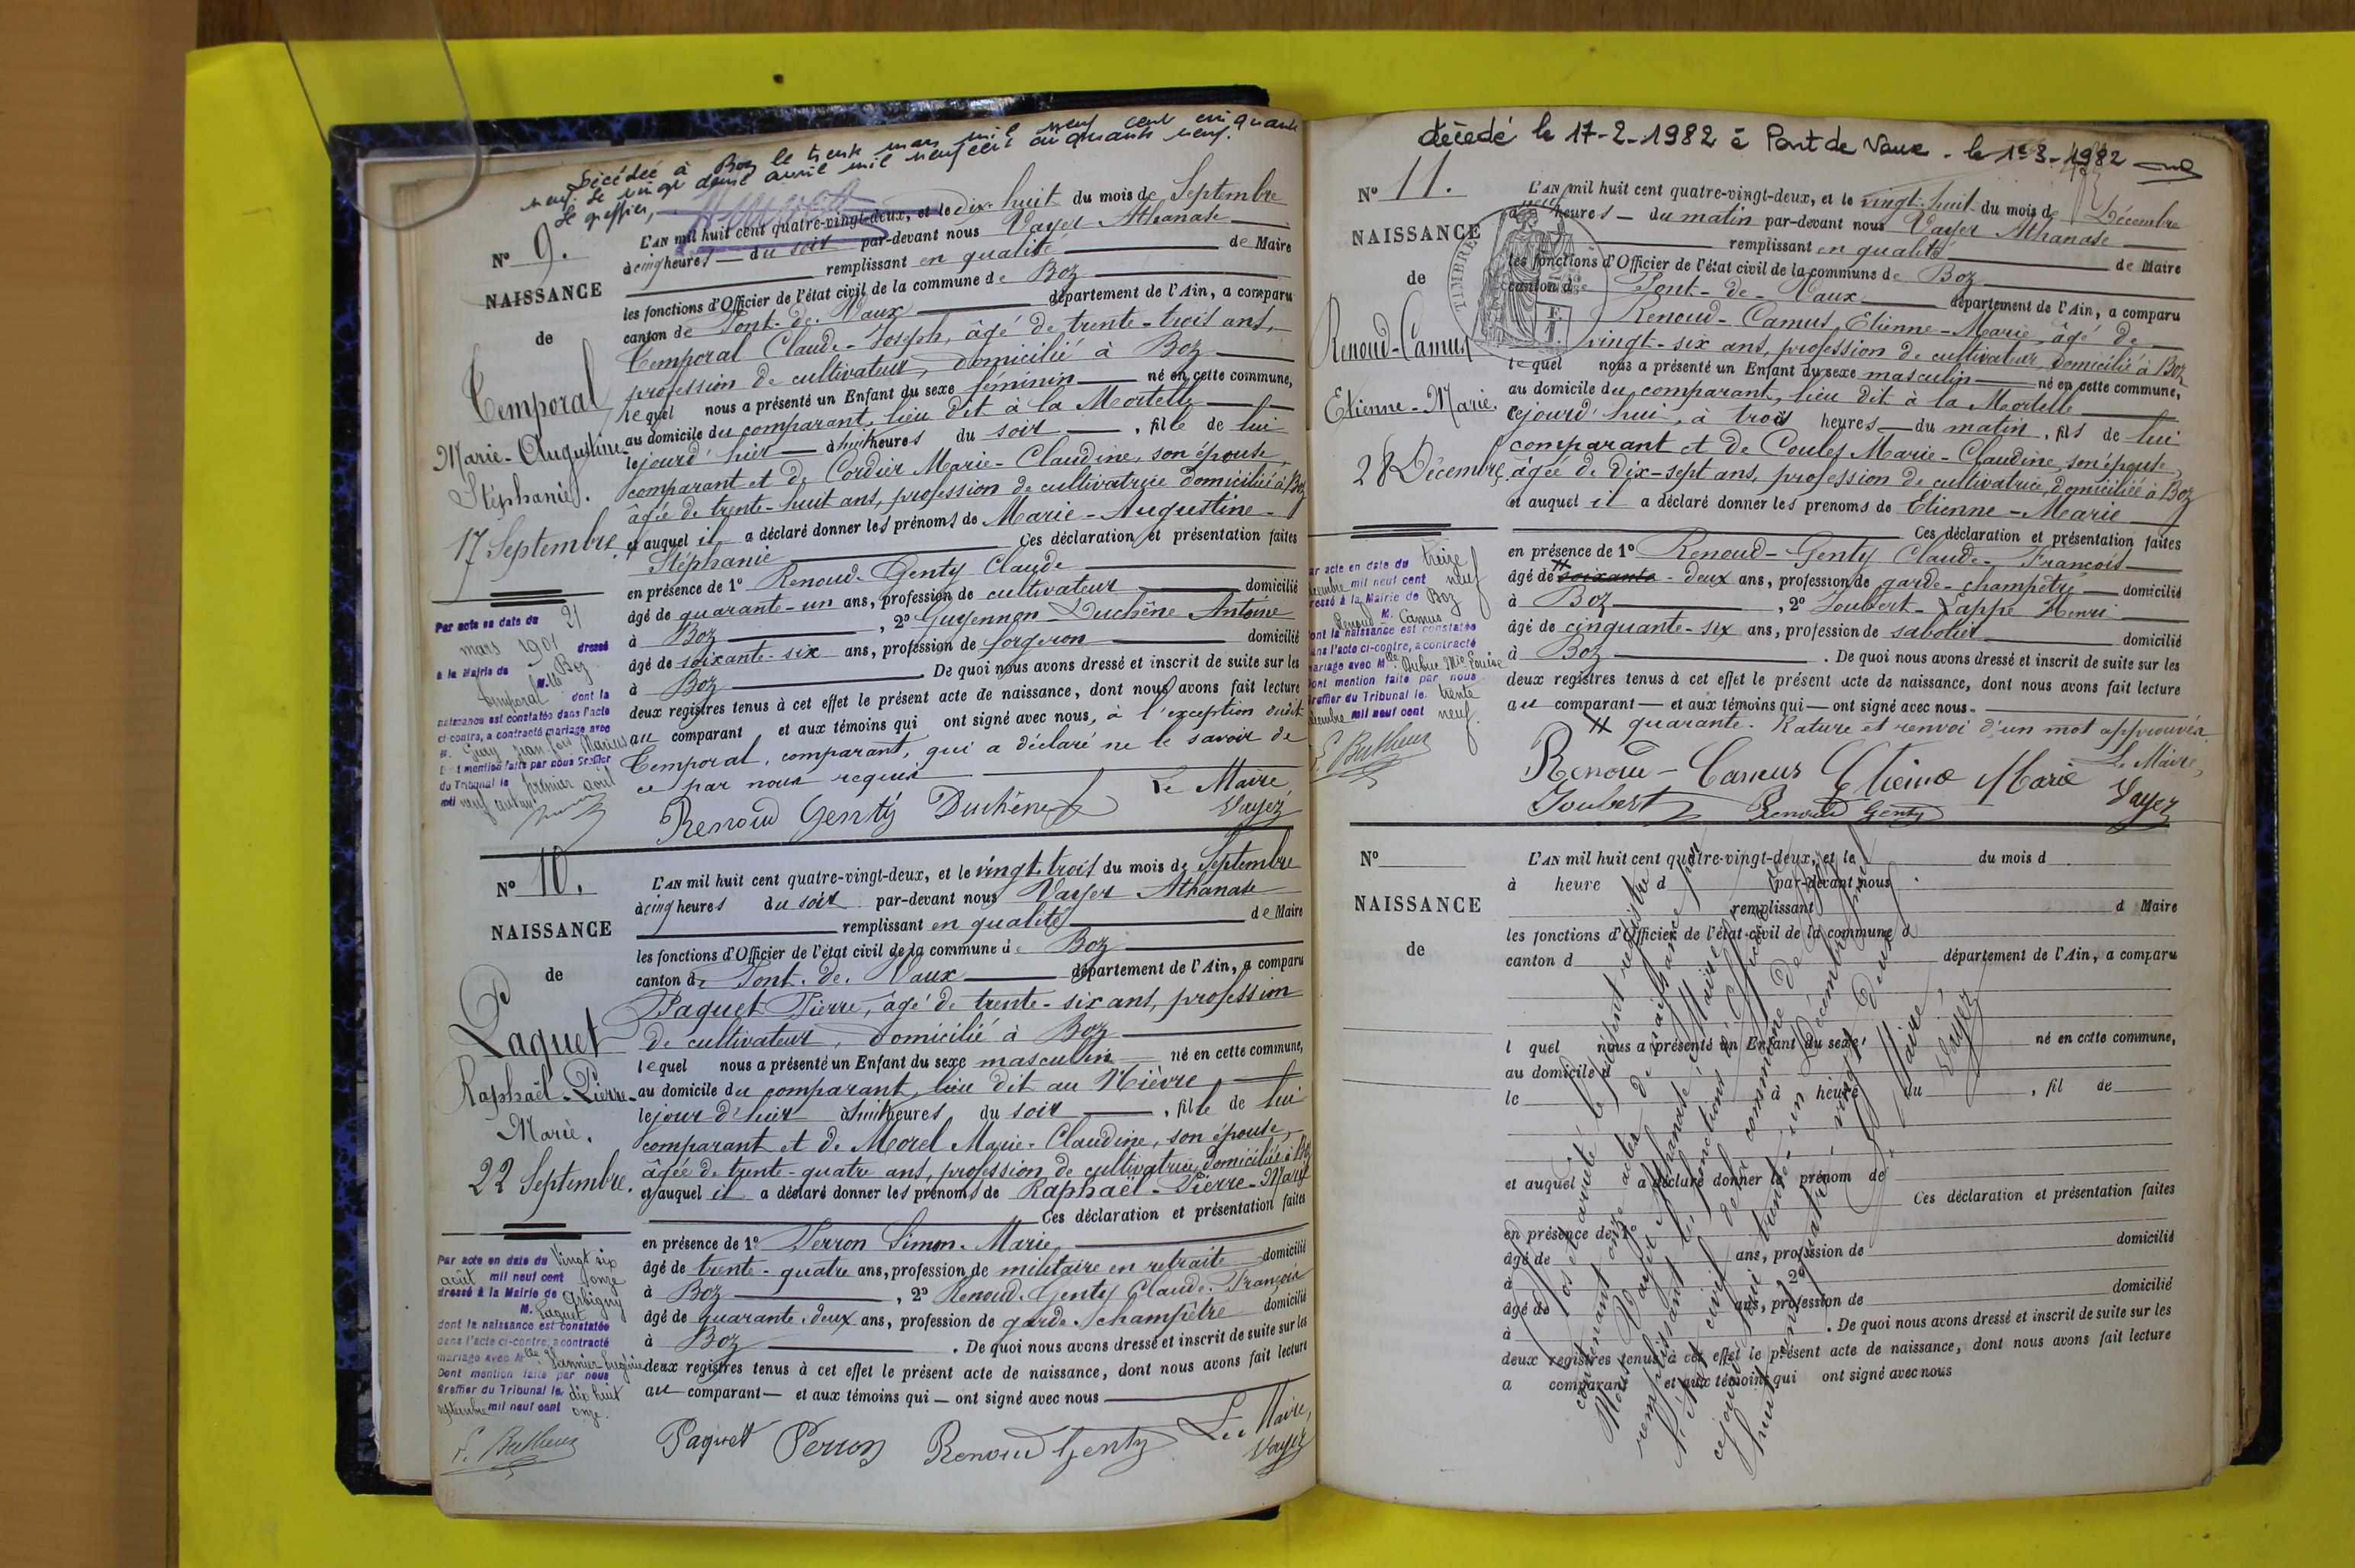 Décédée à Boz le trente mars mil neuf cent cinquante
neuf. Le vingt deux avril mil neuf cent cinquante neuf.
Le greffier,
N° 9.
NAISSANCE
de
Temporal
Marie-Augustine-
Stéphanie.
17 Septembre.
L'AN mil huit cent quatre-vingt-deux, et le dix-huit du mois de Septembre
à cinq heures — du soir par-devant nous Vayer Athanase
remplissant en qualité de Maire
les fonctions d'Officier de l'état civil de la commune de Boz
canton de Pont-de-Vaux département de l'Ain, a comparu
Temporal Claude-Joseph, âgé de trente-trois ans,
profession de cultivateur, domicilié à Boz
lequel nous a présenté un Enfant du sexe féminin né en cette commune,
au domicile du comparant, lieu dit à la Mortelle
le jourd'hier à huit heures du soir, fille de lui
comparant et de Cordier Marie-Claudine, son épouse,
âgée de trente-huit ans, profession de cultivatrice domiciliée à Boz
et auquel il a déclaré donner les prénoms de Marie-Augustine-
Stéphanie Ces déclaration et présentation faites
en présence de 1° Renoud-Genty Claude
âgé de quarante-un ans, profession de cultivateur domicilié
à Boz, 2° Guyennon-Duchêne Antoine
âgé de soixante-six ans, profession de forgeron domicilié
à Boz. De quoi nous avons dressé et inscrit de suite sur les
deux registres tenus à cet effet le présent acte de naissance, dont nous avons fait lecture
au comparant et aux témoins qui ont signé avec nous, à l'exception dudit
Temporal, comparant, qui a déclaré ne le savoir de
ce par nous requis
Le Maire,
Renoud Genty Duchêne Vayer
Par acte en date du 21
mars 1901 dressé
à la Mairie de Boz
M. lle
Temporal dont la
naissance est constatée dans l'acte
ci-contre, a contracté mariage avec
M. Guy Jean fois Marius
Dont mention faite par nous Greffier
du Tribunal le premier août
mil neuf cent un
N° 10.
NAISSANCE
de
Paquet
Raphaël-Pierre-
Marie.
22 Septembre.
L'AN mil huit cent quatre-vingt-deux, et le vingt-trois du mois de Septembre
à cinq heures du soir par-devant nous Vayer Athanase
remplissant en qualité de Maire
les fonctions d'Officier de l'état civil de la commune de Boz
canton de Pont-de-Vaux département de l'Ain, a comparu
Paquet Pierre, âgé de trente-six ans, profession
de cultivateur, domicilié à Boz
lequel nous a présenté un Enfant du sexe masculin né en cette commune,
au domicile du comparant, lieu dit au Nièvre
le jour d'hier à huit heures du soir, fils de lui
comparant et de Morel Marie-Claudine, son épouse,
âgée de trente-quatre ans, profession de cultivatrice, domiciliée à Boz
et auquel il a déclaré donner les prénoms de Raphaël-Pierre-Marie
Ces déclaration et présentation faites
en présence de 1° Perron Simon-Marie
âgé de trente-quatre ans, profession de militaire en retraite domicilié
à Boz, 2° Renoud-Genty Claude-François
âgé de quarante-deux ans, profession de garde-champêtre domicilié
à Boz. De quoi nous avons dressé et inscrit de suite sur les
deux registres tenus à cet effet le présent acte de naissance, dont nous avons fait lecture
au comparant — et aux témoins qui — ont signé avec nous
Paquet Perron Renoud Genty Le Maire,
Vayer
Par acte en date du vingt six
août mil neuf cent onze
dressé à la Mairie de Arbigny
M. Paquet
dont la naissance est constatée
dans l'acte ci-contre, a contracté
mariage avec Mlle Vannier Eugénie
Dont mention faite par nous
Greffier du Tribunal le dix huit
septembre mil neuf cent onze.
décédé le 17-2-1982 à Pont de Vaux - le 1-3-1982
N° 11.
NAISSANCE
de
Renoud-Camus
Etienne-Marie.
28 Décembre.
TIMBRE
L'AN mil huit cent quatre-vingt-deux, et le vingt-huit du mois de Décembre
à heures — du matin par-devant nous Vayer Athanase
remplissant en qualité de Maire
les fonctions d'Officier de l'état civil de la commune de Boz
canton de Pont-de-Vaux département de l'Ain, a comparu
Renoud-Camus Etienne-Marie, âgé de
vingt-six ans, profession de cultivateur, domicilié à Boz
lequel nous a présenté un Enfant du sexe masculin né en cette commune,
au domicile du comparant, lieu dit à la Mortelle
cejourd'hui, à trois heures — du matin, fils de lui
comparant et de Coulas Marie-Claudine, son épouse,
âgée de dix-sept ans, profession de cultivatrice, domiciliée à Boz
et auquel il a déclaré donner les prénoms de Etienne-Marie
Ces déclaration et présentation faites
en présence de 1° Renoud-Genty Claude-François
âgé de soixante-deux ans, profession de garde-champêtre domicilié
à Boz, 2° Joubert-Lappe Henri
âgé de cinquante-six ans, profession de sabotier domicilié
à Boz. De quoi nous avons dressé et inscrit de suite sur les
deux registres tenus à cet effet le présent acte de naissance, dont nous avons fait lecture
au comparant — et aux témoins qui — ont signé avec nous.
quarante. Rature et renvoi d'un mot approuvés.
Le Maire,
Renoud-Camus Etienne Marie Vayer
Joubert Renoud Genty
ar acte en date du treize
cembre mil neuf cent neuf
ressé à la Mairie de Boz
M.
Renoud Camus
ont la naissance est constatée
ans l'acte ci-contre, a contracté
ariage avec Mlle Dubuc Mie Louise
ont mention faite par nous
reffier du Tribunal le trente
cembre mil neuf cent neuf.
N°
NAISSANCE
de
L'AN mil huit cent quatre-vingt-deux, et le du mois d
à heure d par-devant nous
remplissant d Maire
les fonctions d'Officier de l'état civil de la commune d
canton d département de l'Ain, a comparu
l quel nous a présenté un Enfant du sexe né en cette commune,
au domicile
le à heure du, fil de
et auquel a déclaré donner le prénom de
Ces déclaration et présentation faites
en présence de 1°
âgé de ans, profession de domicilié
à 2°
âgé de ans, profession de domicilié
à. De quoi nous avons dressé et inscrit de suite sur les
deux registres tenus à cet effet le présent acte de naissance, dont nous avons fait lecture
a comparant et aux témoins qui ont signé avec nous
Clos et arrêté le présent registre
contenant onze actes de naissance par
Nous Vayer Athanase, Maire
remplissant les fonctions d'Officier de
l'état civil de la commune de Boz
cejourd'hui trente-un Décembre mil
huit cent quatre-vingt-deux
Le Maire,
Vayer